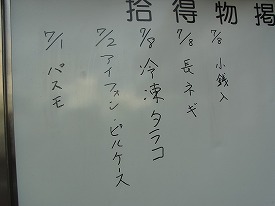 拾得物掲
7/8 小銭入
7/8 長ネギ
7/8 冷凍タラコ
7/2 アイフォン・ピルケース
7/1 パスモ